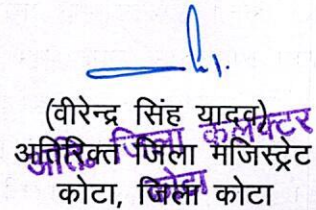 (वीरेन्द्र सिंह यादव)
अतिरिक्त जिला मजिस्ट्रेट
कोटा, जिला कोटा
अति० जिला कलक्टर
कोटा